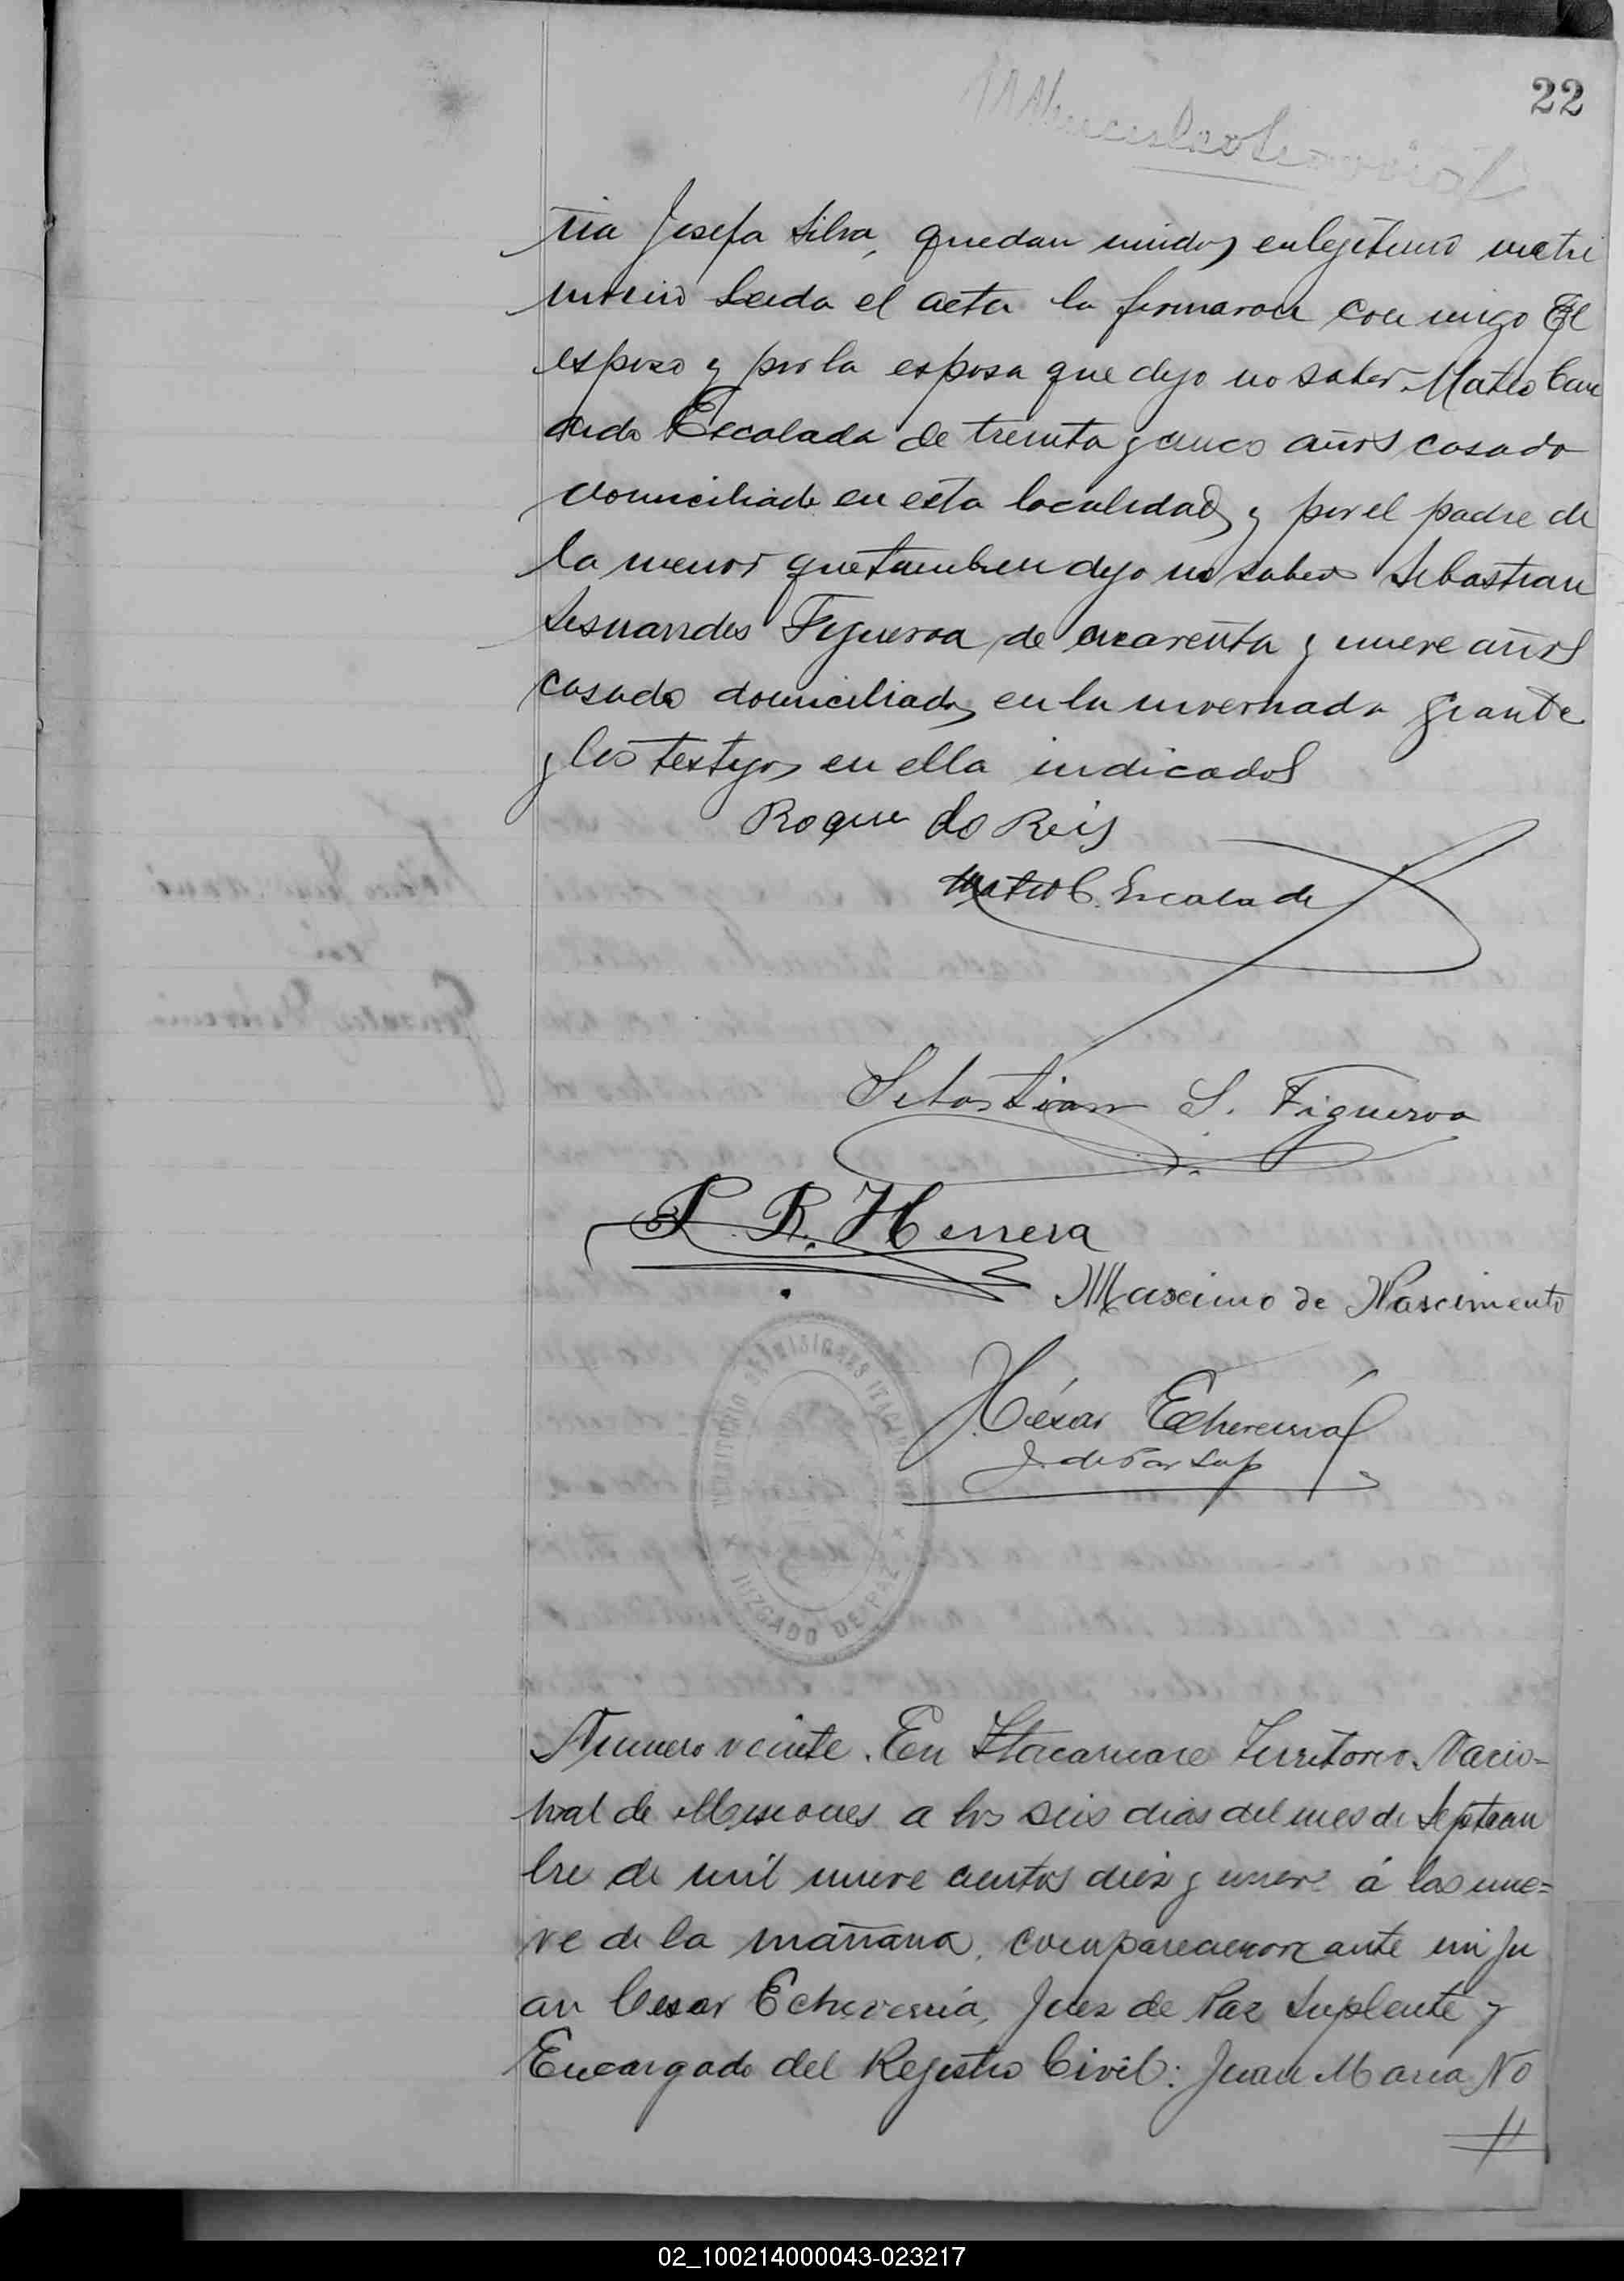 22
ria Josefa Silva, quedan unidos en lejitimo matri
monio Leida el acta la firmaron con migo El
esposo y por la esposa que dijo no saber Mateo Can
dido Escalada de treinta y cinco años casado
domiciliado en esta localidad y por el padre de
la menor que tambien dijo no saber Sebastian
Sesnandes Figueroa, de cuarenta y nueve años
casado domiciliado en la invernada grande
y los testigos en ella indicados
Roque do Reis
Mateo C. Escalada
Sebastian S. Figueroa
P. R. Herrera
Maximo de Nascimento
César Echeverria
J. de Paz Sup
JUZGADO DE PAZ
Numero veinte. En Itacaruare Territorio Nacio-
nal de Misiones a los seis dias del mes de Septiem
bre de mil nueve cientos diez y nueve á las nue=
ve de la mañana, comparecieron ante mi Ju
an Cesar Echeverria, Juez de Paz Suplente y
Encargado del Rejistro Civil: Juan Maria No
02_100214000043-023217